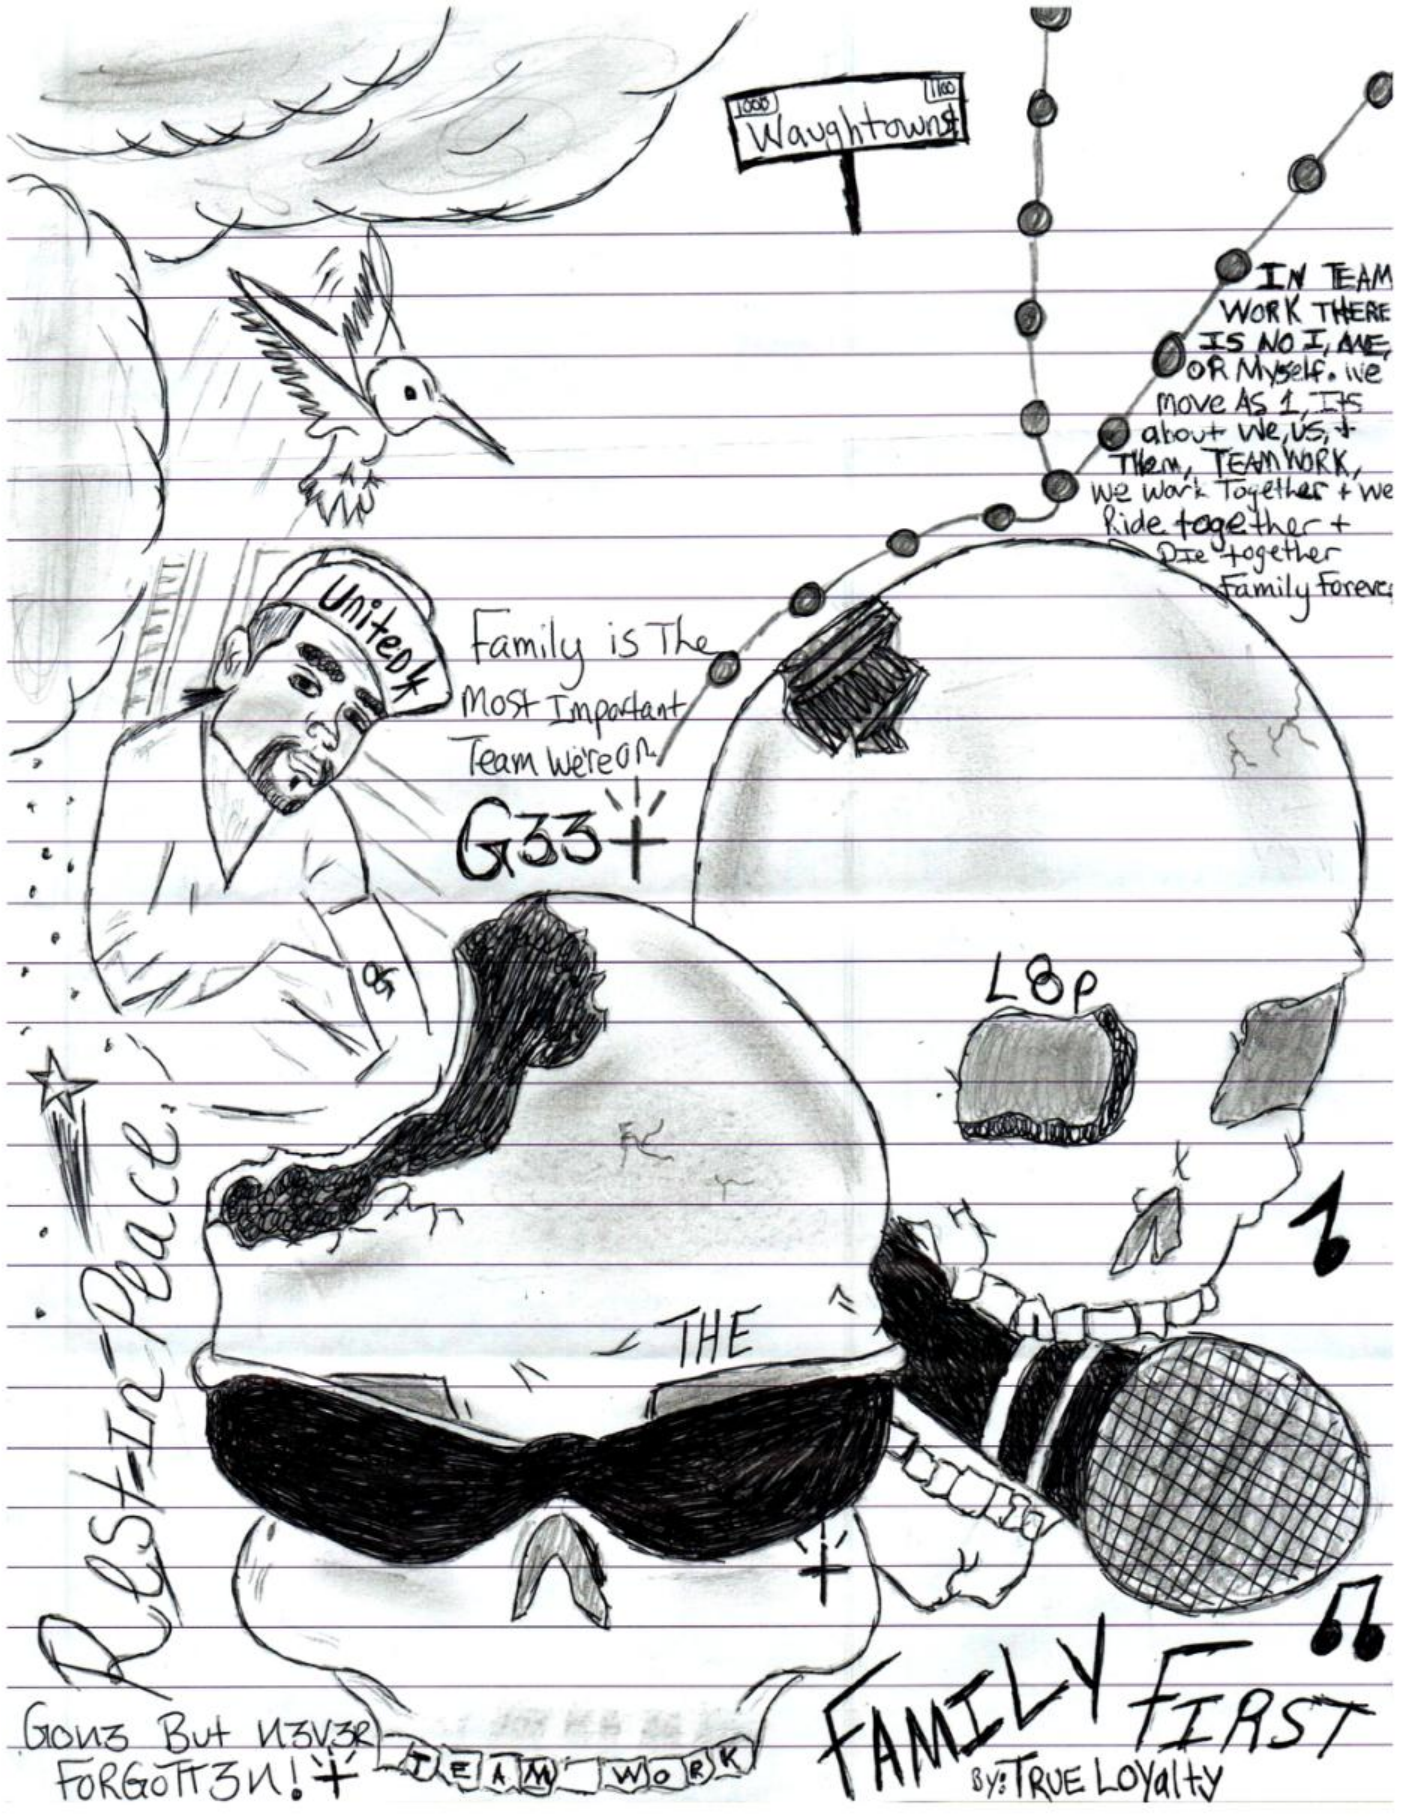 1000 1100
Waughtown St
IN TEAM
WORK THERE
IS NO I, ME,
OR Myself. we
move As 1, Its
about we, us, +
Them, TEAMWORK,
we work Together + we
Ride together +
Die together
Family Forever
United
Family is The
Most Important
Team We're on.
G33
L8P
Rest-In-Peace
THE
Gon3 But N3V3R
FORGOTT3N!
TEAM WORK
FAMILY FIRST
By: TRUE LOyalty